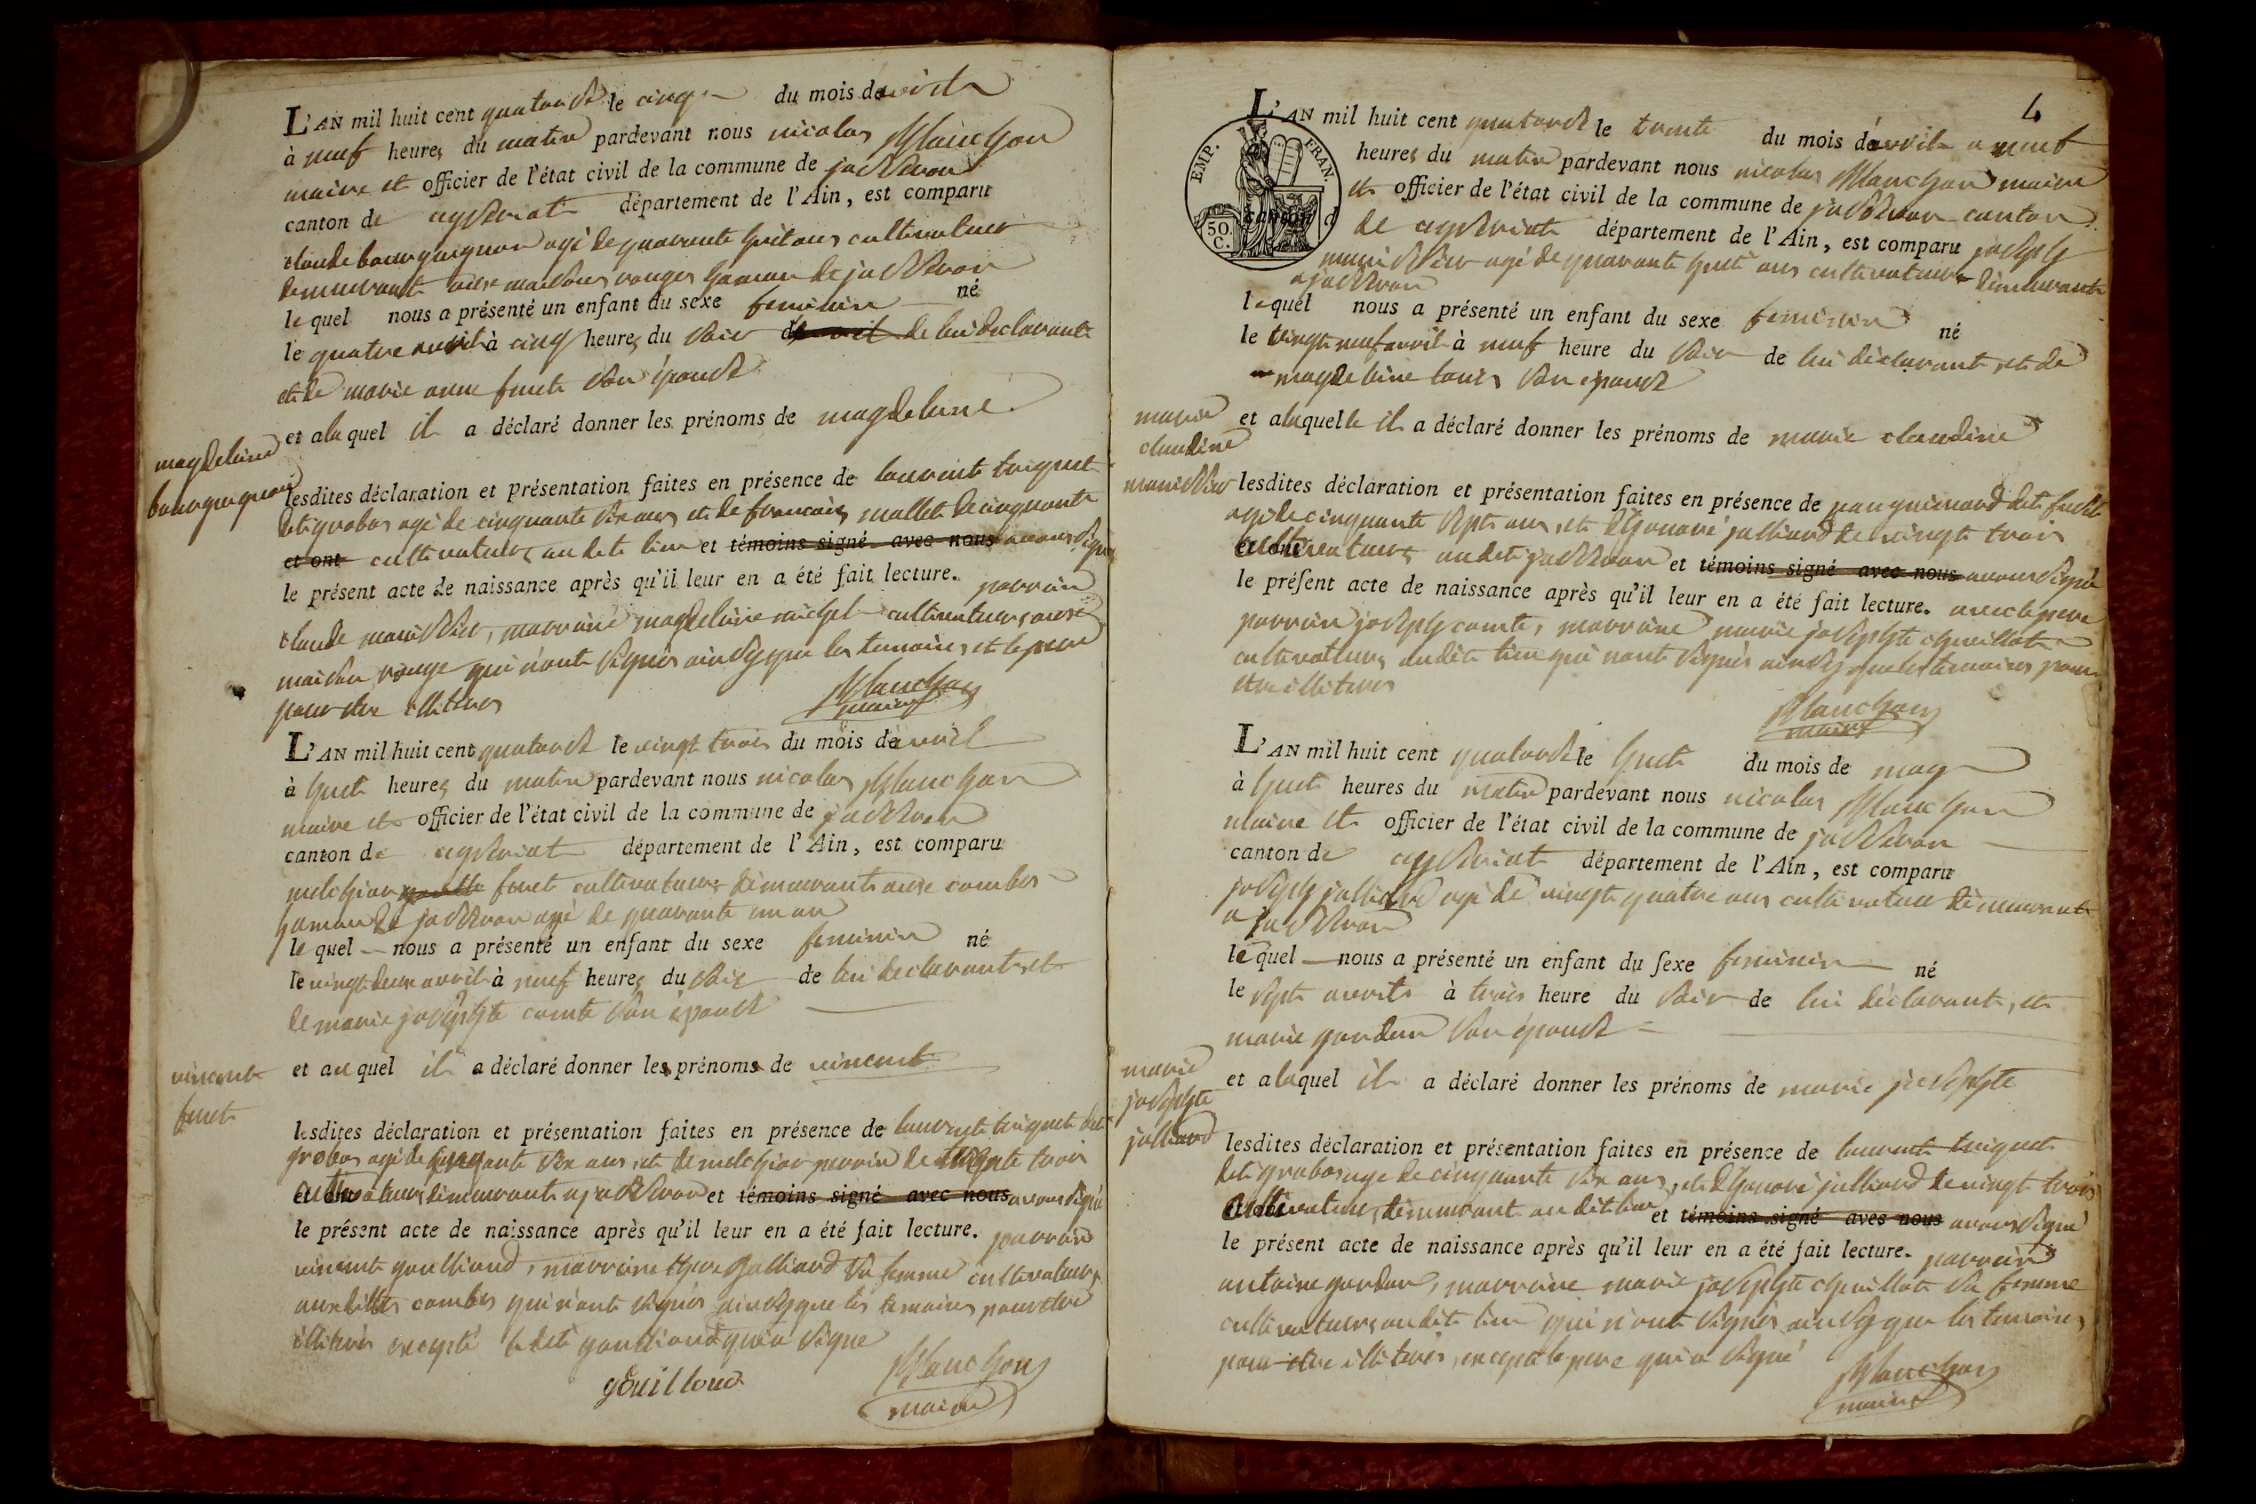 L'AN mil huit cent quatorze le cinq du mois de avril
à neuf heures du matin pardevant nous nicolas Blanchon
maire et officier de l'état civil de la commune de jasseron
canton de ceyseriat département de l'Ain, est comparu
claude bourguignon agé de quarante huit ans cultivateur
demeurant aux maisons rouges hameau de jasseron
lequel nous a présenté un enfant du sexe feminin né
le quatre avril à cinq heures du soir de lui declarant
et de marie anne furet son épouse
et ala quel il a déclaré donner les prénoms de magdelaine
magdelaine
bourguignon
lesdites déclaration et présentation faites en présence de laurent truquet
dit grobas agé de cinquante six ans et de francois mallet de cinquante
et ont cultivateurs au dit lieu et témoins signé avec nous avons signé
le présent acte de naissance après qu'il leur en a été fait lecture. parrain
claude marissier, marraine magdelaine michel cultivateurs aux
maison rouge qui n'ont signés ainsy que les temoins et le pere
pour etre illiteres
Blanchon
maire
L'AN mil huit cent quatorze le vingt trois du mois de avril
à huit heures du matin pardevant nous nicolas Blanchon
maire et officier de l'état civil de la commune de jasseron
canton de ceyseriat département de l'Ain, est comparu
melchior furet cultivateur demeurant aux combes
hameau de jasseron agé de quarante un an
le quel nous a présenté un enfant du sexe feminin né
le vingt deux avril à neuf heures du soir de lui declarant et
de marie josephte comte son épouse
et au quel il a déclaré donner les prénoms de vincent
vincent
furet
lesdites déclaration et présentation faites en présence de laurent truquet dit
grobas agé de cinquante six ans et de melchior perrin de trois
cultivateurs demeurant a jasseron et témoins signé avec nous avons signé
le présent acte de naissance après qu'il leur en a été fait lecture. parrain
vincent gouilloud, marraine julliard sa femme cultivateurs
aux dittes combes qui n'ont signés ainsy que les temoins pour etre
illiteres excepté le dit gouilloud qui a signe
gouilloud
Blanchon
maire
4
EMP. FRAN.
50. C.
L'AN mil huit cent quatorze le trente du mois d'avril a neuf
heures du matin pardevant nous nicolas Blanchon maire
et officier de l'état civil de la commune de jasseron canton
canton d
de ceyseriat département de l'Ain, est comparu joseph
marissier agé de quarante huit ans cultivateur demeurant
a jasseron
lequel nous a présenté un enfant du sexe feminin né
le vingt neuf avril à neuf heure du soir de lui déclarant, et de
magdelaine son épouse
et alaquelle il a déclaré donner les prénoms de marie claudine
marie
claudine
marissier
lesdites déclaration et présentation faites en présence de jean dit
agé de cinquante sept ans, et d'honoré julliard de vingt trois
cultivateurs au dit jasseron et témoins signé avec nous avons signé
le présent acte de naissance après qu'il leur en a été fait lecture. avec le pere
parrain joseph comte, marraine marie josephte chevillot
cultivateurs audit lieu qui n'ont signés ainsy que les temoins pour
etre illiteres
Blanchon
maire
L'AN mil huit cent quatorze le huit du mois de may
à huit heures du matin pardevant nous nicolas Blanchon
maire et officier de l'état civil de la commune de jasseron
canton de ceyseriat département de l'Ain, est comparu
joseph julliard agé de vingt quatre ans cultivateur demeurant
a jasseron
le quel nous a présenté un enfant du sexe feminin né
le sept avril à trois heure du soir de lui déclarant, et
marie gordon son épouse
et alaquel il a déclaré donner les prénoms de marie josephte
marie
josephte
julliard
lesdites déclaration et présentation faites en présence de laurent truquet
dit grobas age de cinquante six ans, et d'honoré julliard de vingt trois
cultivateurs, demeurant au dit lieu et témoins signé avec nous avons signé
le présent acte de naissance après qu'il leur en a été fait lecture. parrain
antoine gordon, marraine marie josephte chevillot sa femme
cultivateurs au dit lieu qui n'ont signés ainsy que les temoins
pour etre illiteres, excepté le pere qui a signé
Blanchon
maire